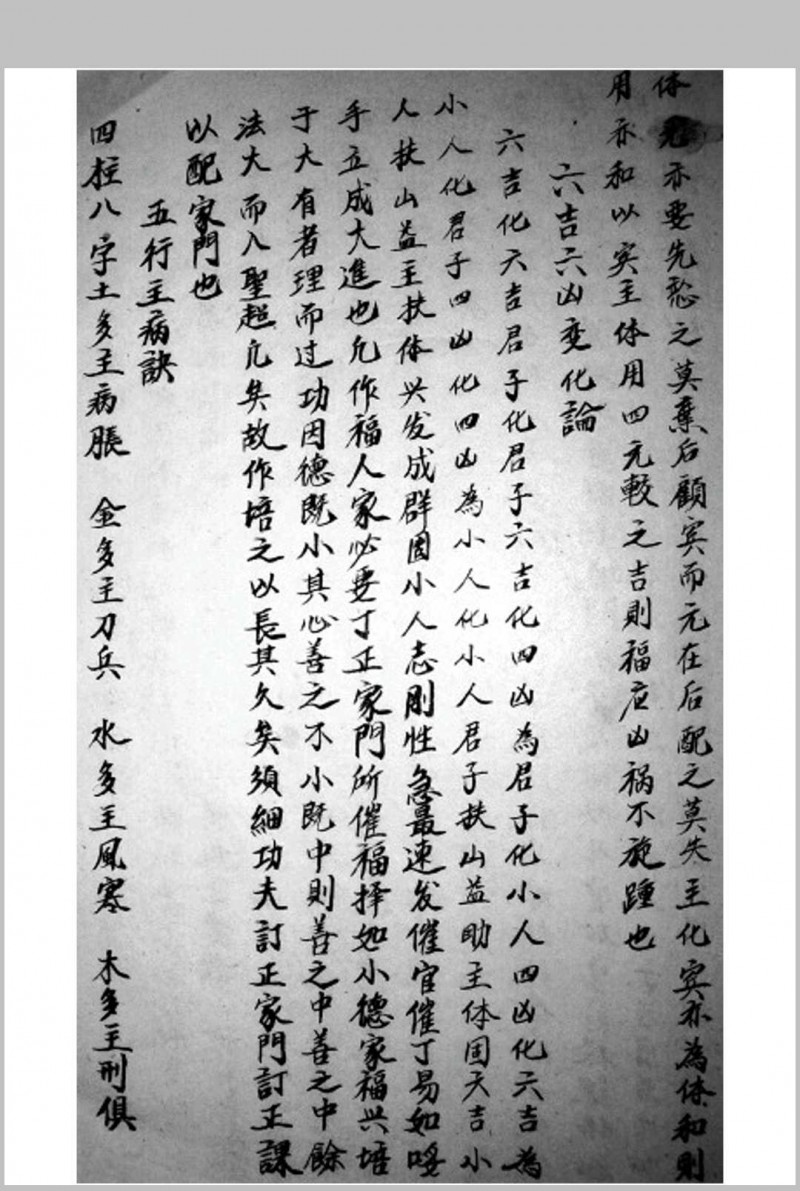 体亦要先愁之莫棄后顧宾而元在后配之莫失主化宾亦為体和則
用亦和以实主体用四元較之吉則福应凶禍不旋踵也
六吉六凶变化論
六吉化六吉君子化君子六吉化四凶為君子化小人四凶化六吉為
小人化君子四凶化四凶為小人化小人君子扶山益助主体固大吉小
人扶山益主扶体兴发成群固小人志剛性急最速发催官催丁易如
手立成大進也凡作福人家必要丁正家門所催福择如小德家福兴培
于大有者理而过功因德既小其心善之不小既中則善之中善之中餘
法大而入聖超凡矣故作培之以長其久矣須細功夫訂正家門訂正課
以配家門也
五行主病訣
四柱八字土多主病脹 金多主刀兵 水多主風寒 木多主刑俱